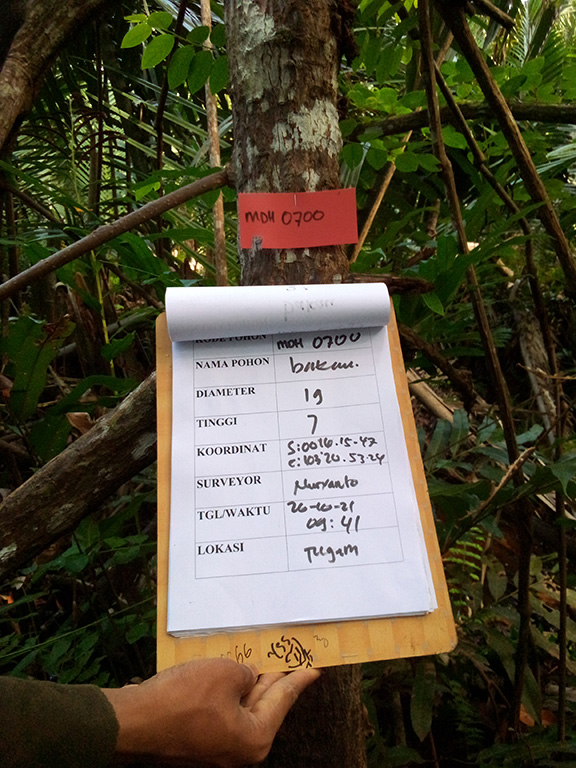 MDH 0700
KODE POHON MDH 0700
NAMA POHON bakau.
DIAMETER 19
TINGGI 7
KOORDINAT S:0026.15-47
E:10320.53.24
SURVEYOR Nuryanto
TGL/WAKTU 26-10-21
09:41
LOKASI Tugam